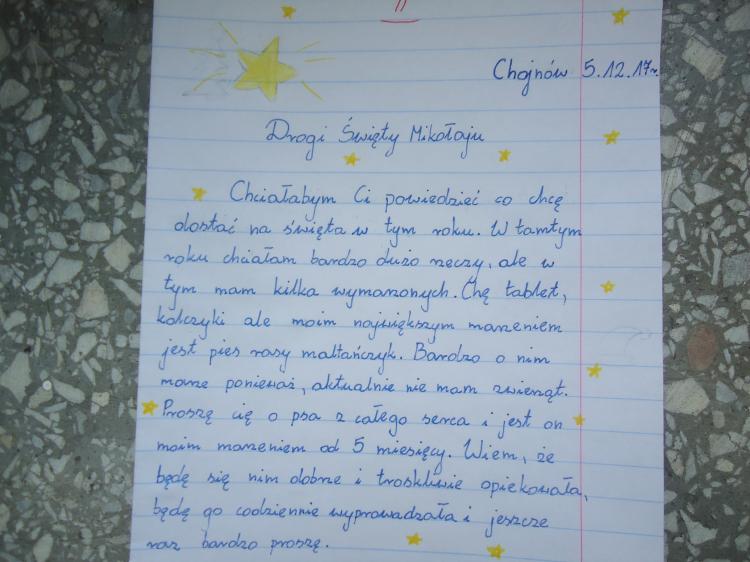 Chojnów 5.12.17r.
Drogi Święty Mikołaju
Chciałabym Ci powiedzieć co chcę
dostać na święta w tym roku. W tamtym
roku chciałam bardzo dużo rzeczy, ale w
tym mam kilka wymarzonych. Chę tablet,
kolczyki ale moim największym marzeniem
jest pies rasy maltańczyk. Bardzo o nim
marze ponieważ, aktualnie nie mam zwierząt.
Proszę cię o psa z całego serca i jest on
moim marzeniem od 5 miesięcy. Wiem, że
będę się nim dobrze i troskliwie opiekowała,
będę go codziennie wyprowadzała i jeszcze
raz bardzo proszę.